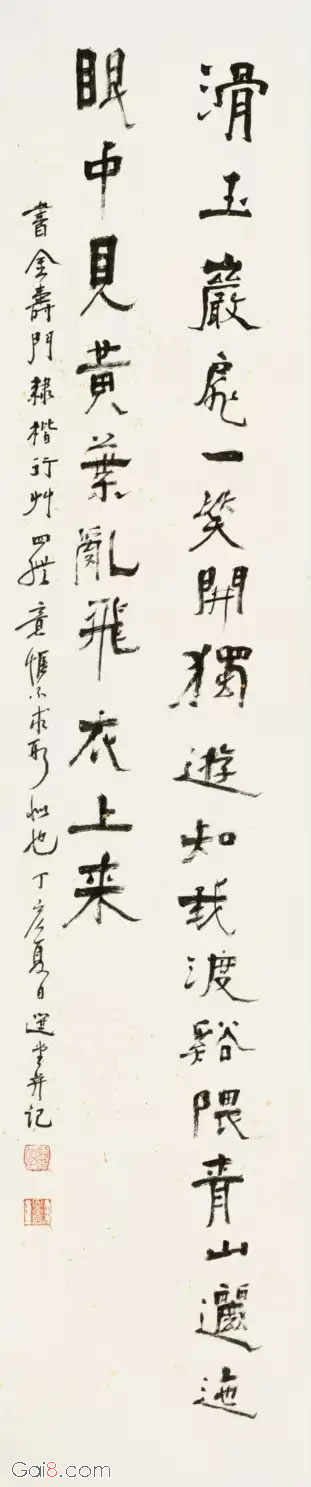 滑玉巖扉一笑開獨遊知我渡谿隈青山邐迤
眼中見黄葉亂飛衣上来
書金壽門隸楷行艸意惟不求形似也丁亥夏日選堂并記
Gai8.com